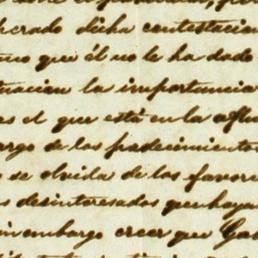 crado dicha contestacion
que él no le ha dado
tuacion la importancia
as el que está en la aflu
argo de los padecimientos
se olvida de los favore
s desinteresados que haya
in embargo creer que Ga